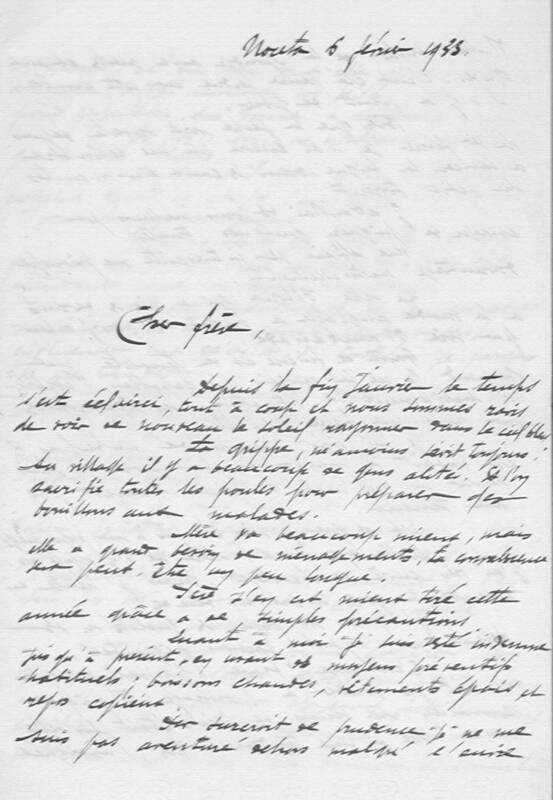 Noceta 6 février 1933.
Cher frère,
Depuis la fin Janvier le temps
s'est éclairci, tout à coup et nous sommes ravis
de voir de nouveau le soleil rayonner dans le ciel bleu
La grippe, néanmoins sévit toujours!
Au village il y a beaucoup de gens alités. Et l'on
sacrifie toutes les poules pour préparer des
bouillons aux malades.
Mère va beaucoup mieux, mais
elle a grand besoin de ménagements, la convalescence
sera peut-être un peu longue.
s'en est mieux tiré cette
année grâce à de simples précautions
Quant à moi je suis resté indemne
jusqu'à présent, en usant de moyens préventifs
habituels; boissons chaudes, vêtements épais, et
repos copieux
Par surcroît de prudence je ne me
suis pas aventuré dehors malgré l'envie